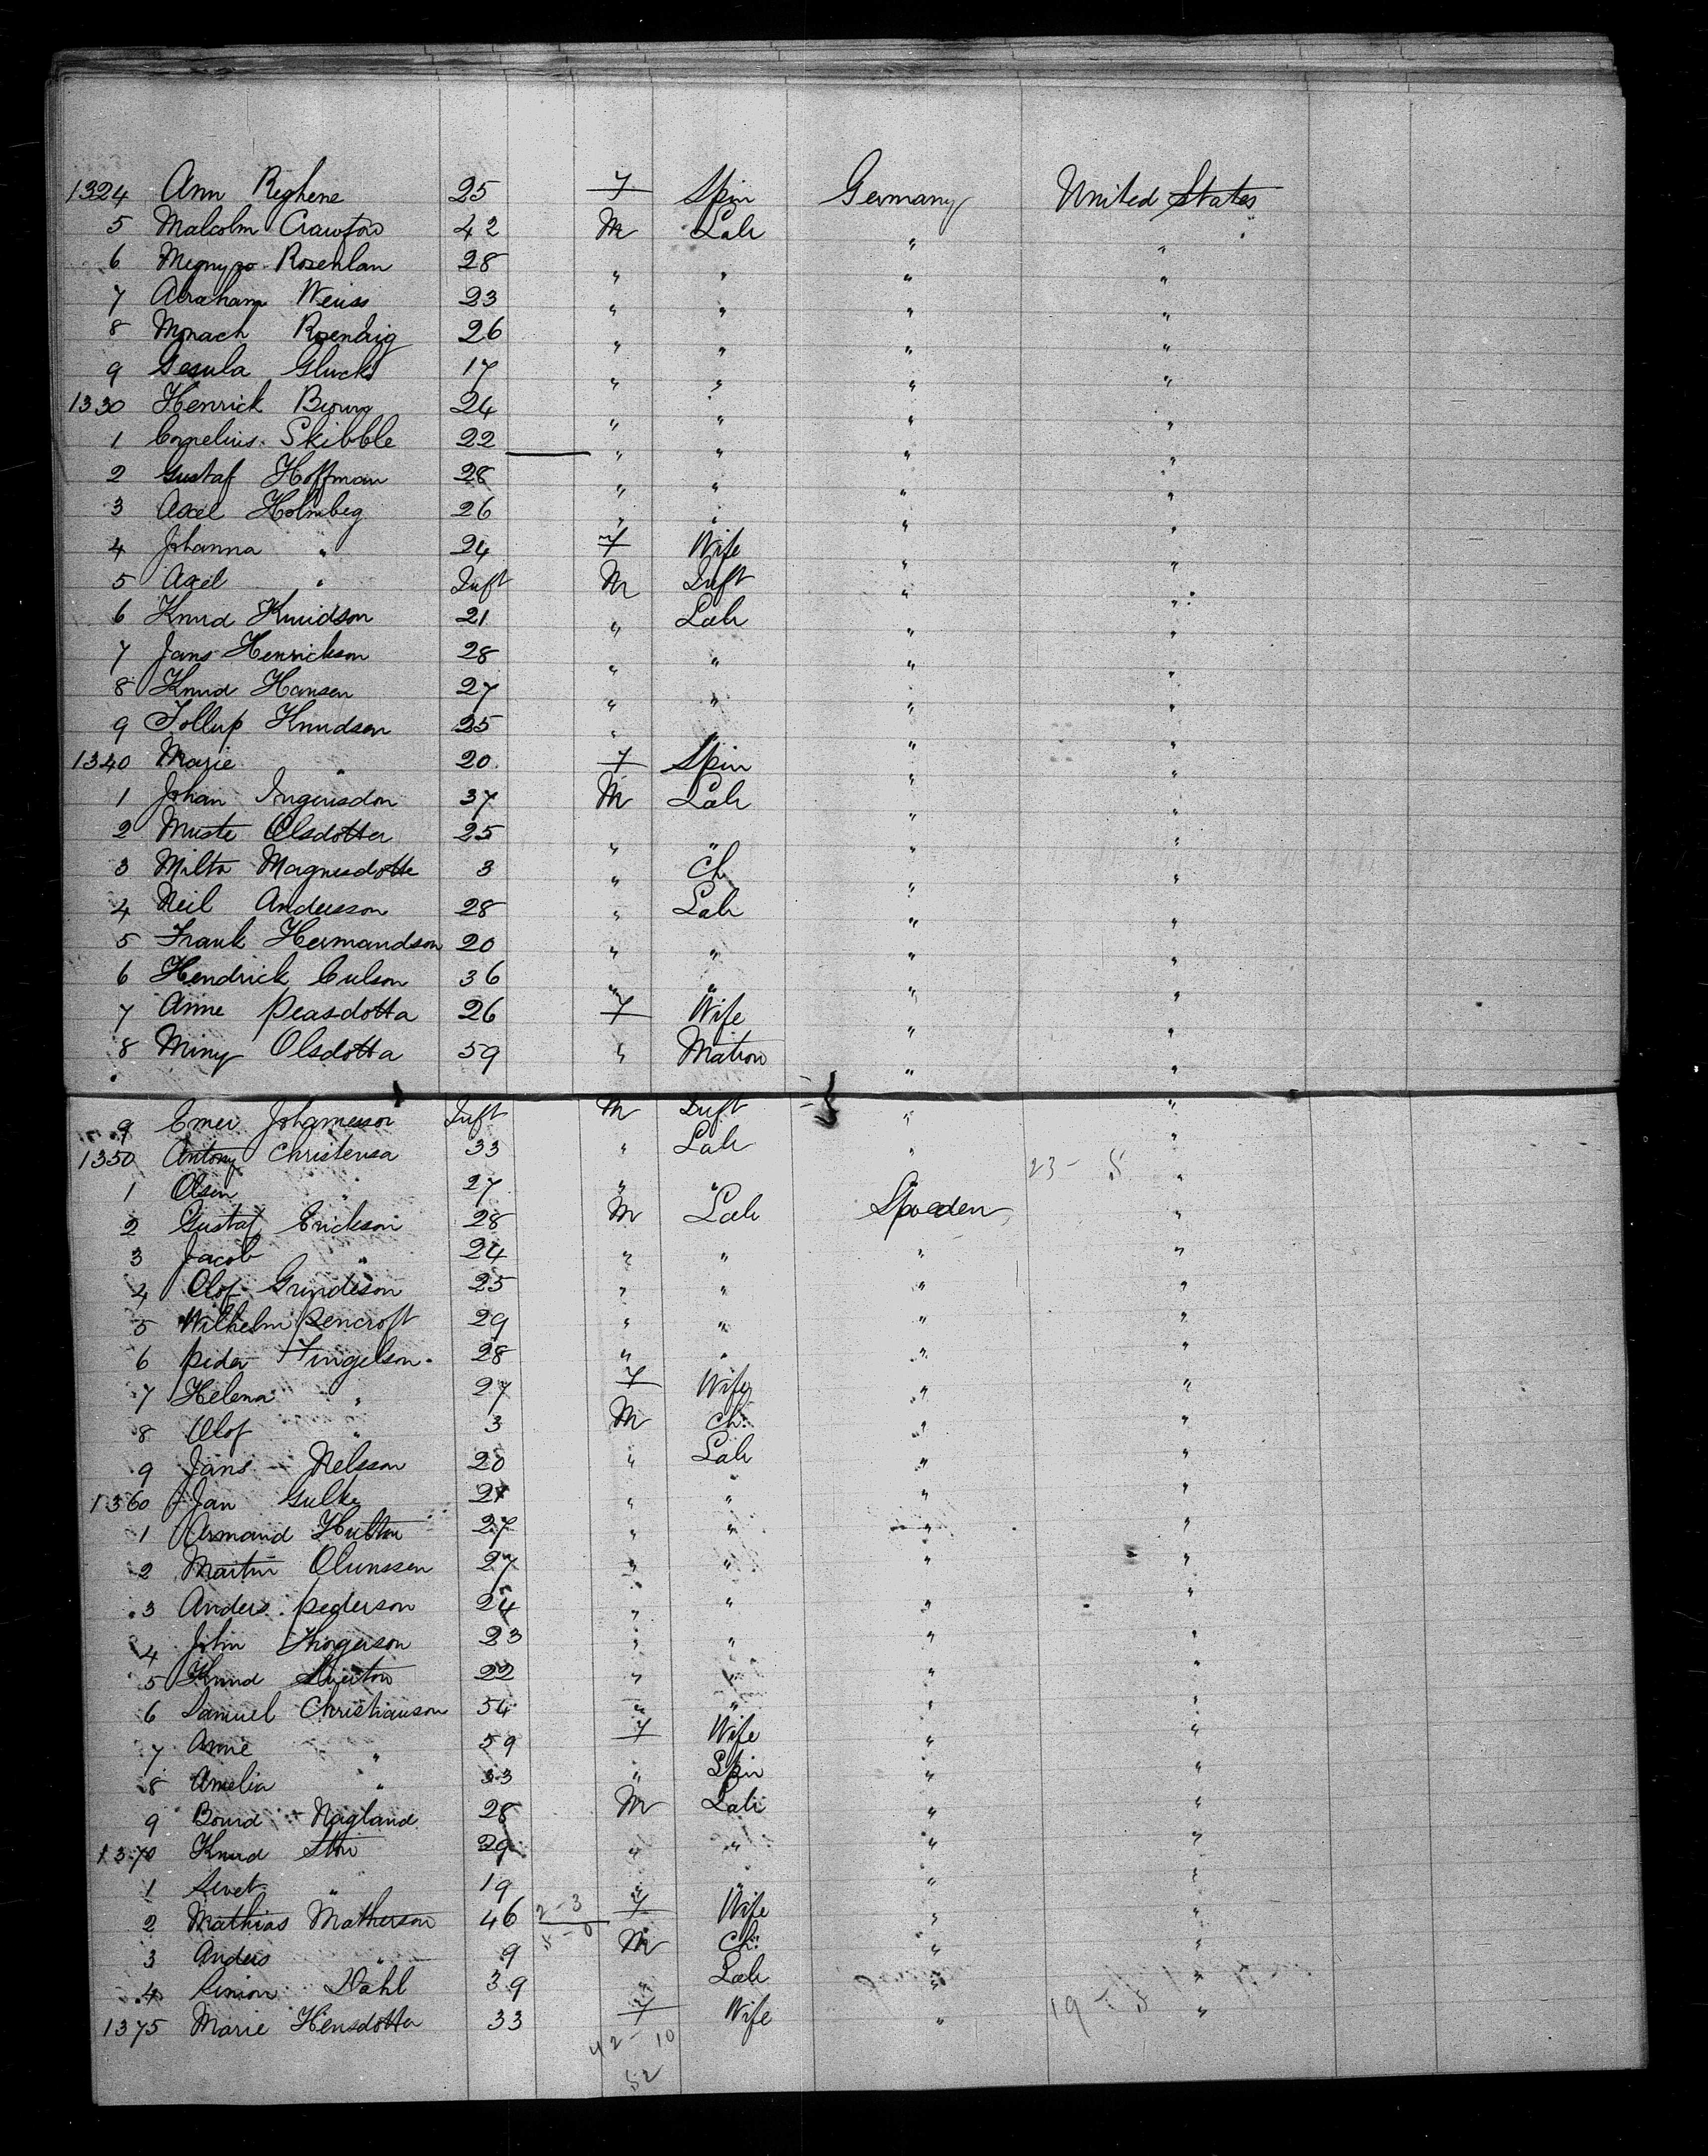 1324 Ann Reghene 25 F Spin Germany United States
5 Malcolm Crawford 42 M Lab " "
6 Rosenlan 28 " " " "
7 Abraham Weiss 23 " " " "
8 Monach Rosendrig 26 " " " "
9 Gesula Gluck 17 " " " "
1330 Henrick 24 " " " "
1 Cornelius Skibble 22 " " " "
2 Gustaf Hoffman 28 " " " "
3 Axel Holmbeg 26 " " " "
4 Johanna " 24 F Wife " "
5 Axel " Inft M Inft " "
6 Knud Knudson 21 " Lab " "
7 Jans Henrickson 28 " " " "
8 Knud Hansen 27 " " " "
9 Tollup Knudsen 25 " " " "
1340 Marie " 20 F Spin " "
1 Johan 37 M Lab " "
2 Muste Olsdotter 25 " " " "
3 Milta Magnusdotte 3 " Ch " "
4 Neil Andersson 28 " Lab " "
5 Frank Hermandson 20 " " " "
6 Hendrick Culson 36 " " " "
7 Anne Peasdotta 26 F Wife " "
8 Miny Olsdotta 59 " Matron " "
9 Emer Johanneson Inft M Inft " "
1350 Antony Christensa 33 " Lab " 23 - 5 "
1 Olsen " 27 " " "
2 Gustaf Erickson 28 M Lab Sweden "
3 Jacob " 24 " " " "
4 Olof Grindeson 25 " " " "
5 Wilhelm Pencroft 29 " " " "
6 Peder Fingelson 28 " " " "
7 Helena " 27 F Wife " "
8 Olof " 3 M Ch " "
9 Jans Nelsson 20 " Lab " "
1360 Jan Gulke 21 " " " "
1 Armand Hutton 27 " " " "
2 Martin Olunssen 27 " " " "
3 Anders Pederson 24 " " " "
4 John Thorgerson 23 " " " "
5 Knud 22 " " " "
6 Samuel Christianson 54 " " " "
7 Annie " 59 F Wife " "
8 Amelia " 33 " Spin " "
9 Bound Nagland 28 M Lab " "
1370 Knud Stoi 29 " " " "
1 Sivet " 19 " " " "
2 Mathias Matherson 46 2-3 F Wife " "
3 Anders " 9 5-0 M Ch " "
4 Simon Dahl 39 " Lab " "
1375 Marie Hensdotta 33 F Wife " 19 - 5 "
42 - 10
52